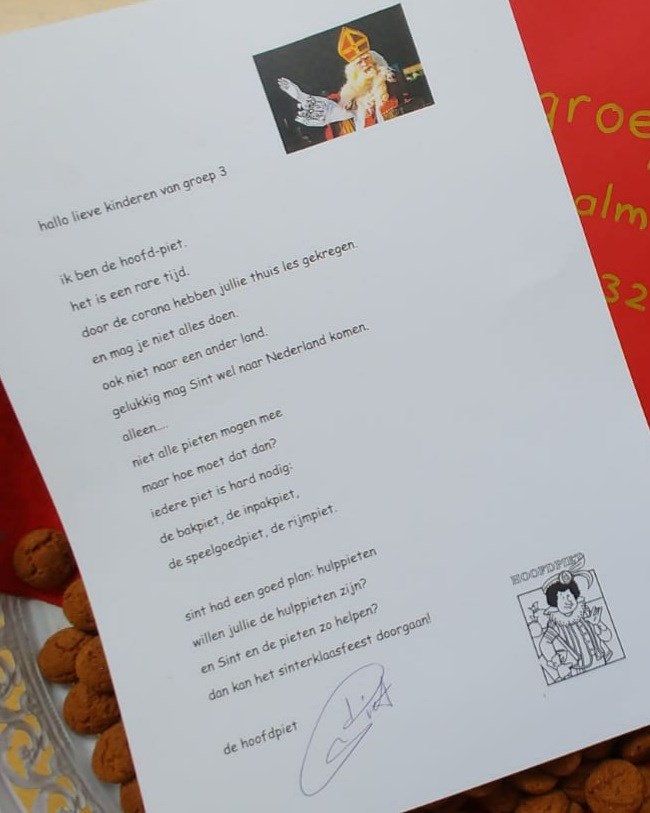 hallo lieve kinderen van groep 3
ik ben de hoofd-piet.
het is een rare tijd.
door de corana hebben jullie thuis les gekregen.
en mag je niet alles doen.
ook niet naar een ander land.
gelukkig mag Sint wel naar Nederland komen.
alleen....
niet alle pieten mogen mee
maar hoe moet dat dan?
iedere piet is hard nodig:
de bakpiet, de inpakpiet,
de speelgoedpiet, de rijmpiet.
sint had een goed plan: hulppieten
willen jullie de hulppieten zijn?
en Sint en de pieten zo helpen?
dan kan het sinterklaasfeest doorgaan!
de hoofdpiet
HOOFDPIET
groe
alm
32